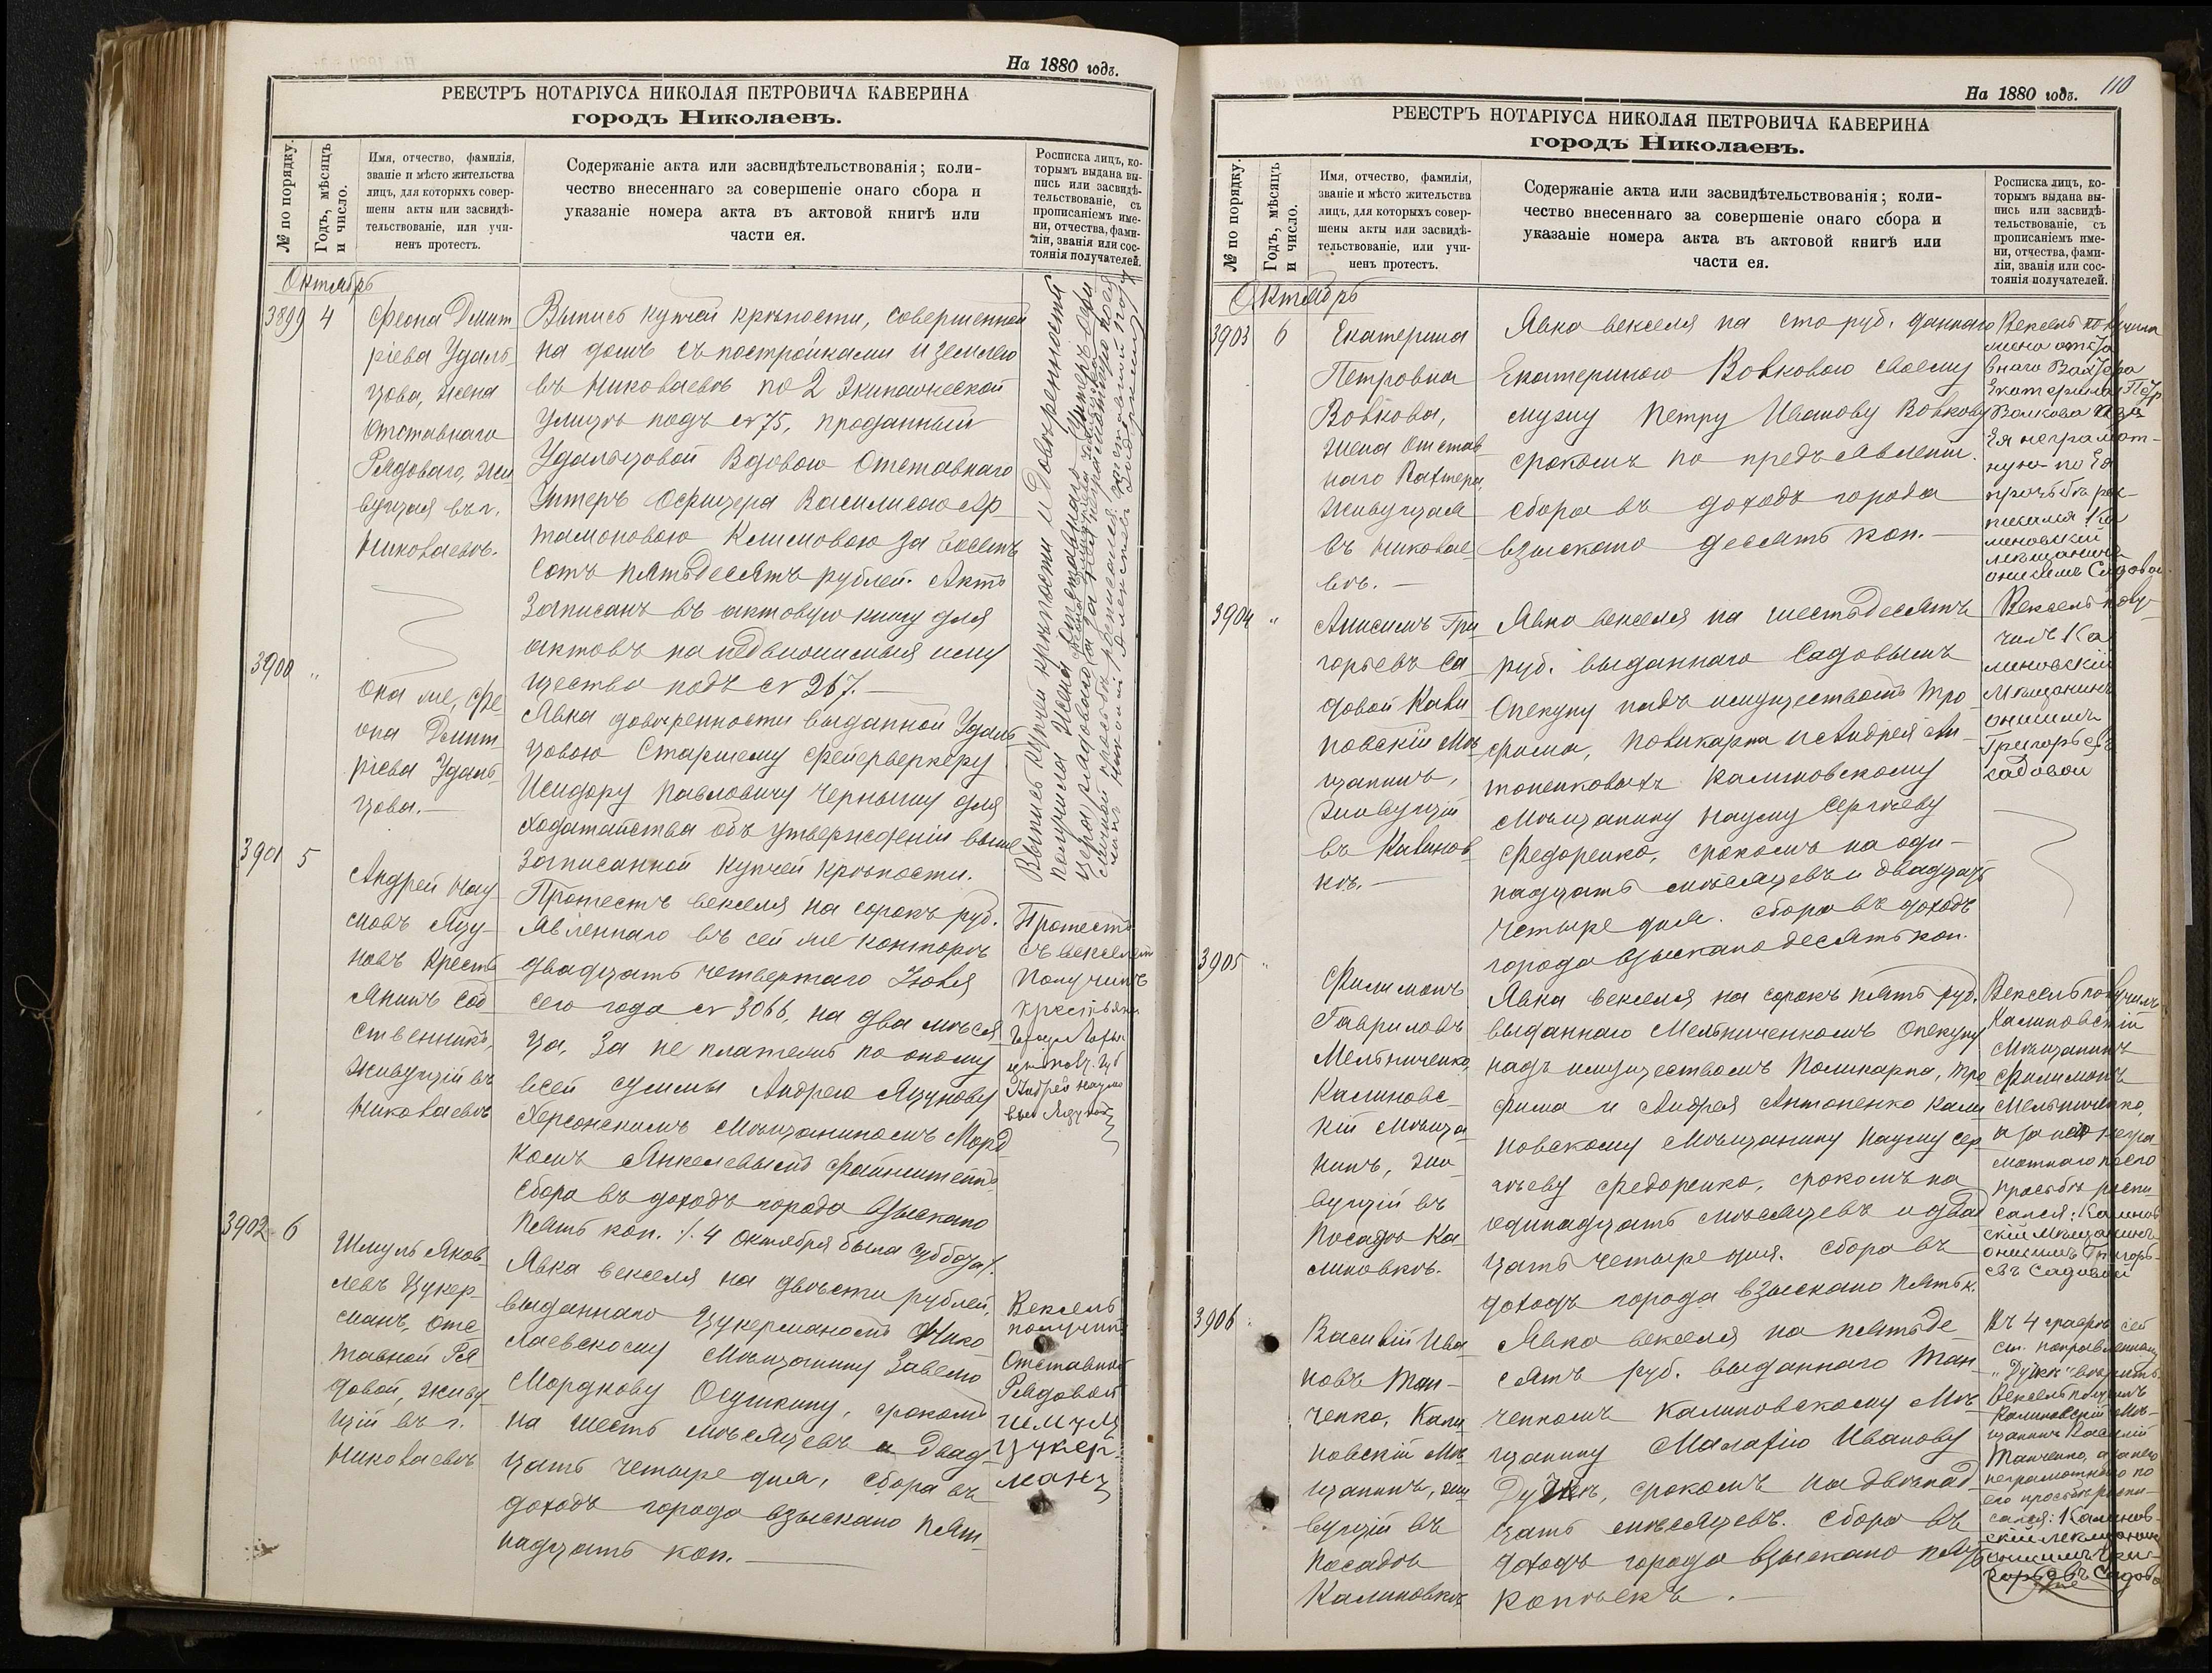 На 1880 годъ.
РЕЕСТРЪ НОТАРІУСА НИКОЛАЯ ПЕТРОВИЧА КАВЕРИНА
городъ Николаевъ.
№ по порядку.
Годъ, мѣсяцъ
и число.
Имя, отчество, фамилія,
званіе и мѣсто жительства
лицъ, для которыхъ совер-
шены акты или засвидѣ-
тельствованіе, или учи-
ненъ протестъ.
Содержаніе акта или засвидѣтельствованія; коли-
чество внесеннаго за совершеніе онаго сбора и
указаніе номера акта въ актовой книгѣ или
части ея.
Росписка лицъ, ко-
торымъ выдана вы-
пись или засвидѣ-
тельствованіе, съ
прописаніемъ име-
ни, отчества, фами-
ліи, званія или сос-
тоянія получателей.
Октябрь
3899 4
Феона Дмит
ріева Удаль
цова, жена
Отставнаго
Рядоваго, жи
вущая въ г.
Николаевѣ.
Выпись купчей крѣпости, совершенной
на домъ съ постройками и землею
въ Николаевѣ по 2 Экипажеской
улицѣ подъ № 75, проданный
Удальцовой Вдовою Отставнаго
Унтеръ Офицера Василисою Ар
тамоновою Климовою за восемь
сотъ пятьдесятъ рублей. Актъ
записанъ въ актовую книгу для
актовъ на недвижимыя иму
щества подъ № 267.—
Выпись купчей крѣпости и Довѣренность
получила жена отставнаго
3900 "
Она же, Фе
она Дмит
ріева Удаль
цова.—
Явка довѣренности выданной Удаль
цовою Старшему Фейерверкеру
Исидору Павловичу Чернышу для
ходатайства объ утвержденіи выше
записанной купчей крѣпости.
3901 5
Андрей Нау
мовъ Язу-
новъ Кресть
янинъ Соб
ственникъ,
живущій въ
Николаевѣ
Протестъ векселя на сорокъ руб.
явленнаго въ сей же конторѣ
двадцать четвертаго Іюля
сего года № 3066, на два мѣся
ца, за не платежъ по оному
всей суммы Андрею Язунову
Херсонскимъ Мѣщаниномъ Морд
комъ Янкелевымъ Файнштейнъ.
Сбора въ доходъ города взыскано
пять коп. /. 4 Октября была Суббота/.
Протестъ
съ векселемъ
Получилъ
крестьянинъ
Андрей Наумо
3902 6
Шмуль Яков
левъ Цукер-
манъ, Отс
тавной Ря
довой, живу
щій въ г.
Николаевѣ
Явка векселя на двѣсти рублей,
выданнаго Цукерманомъ Нико
лаевскому Мѣщанину Завелю
Мордкову Осушкину, срокомъ
на шесть мѣсяцевъ и двад
цать четыре дня, сбора въ
доходъ города взыскано пят
надцать коп.—
Вексель
получилъ
Отставной
Рядовой
Шмуль
Цукер-
манъ
На 1880 годъ. 110
РЕЕСТРЪ НОТАРІУСА НИКОЛАЯ ПЕТРОВИЧА КАВЕРИНА
городъ Николаевъ.
№ по порядку.
Годъ, мѣсяцъ
и число.
Имя, отчество, фамилія,
званіе и мѣсто жительства
лицъ, для которыхъ совер-
шены акты или засвидѣ-
тельствованіе, или учи-
ненъ протестъ.
Содержаніе акта или засвидѣтельствованія; коли-
чество внесеннаго за совершеніе онаго сбора и
указаніе номера акта въ актовой книгѣ или
части ея.
Росписка лицъ, ко-
торымъ выдана вы-
пись или засвидѣ-
тельствованіе, съ
прописаніемъ име-
ни, отчества, фами-
ліи, званія или сос-
тоянія получателей.
Октябрь
3903 6
Екатерина
Петровна
Вовкова,
жена Отстав
наго Вахтера,
живущая
въ Николае
вѣ.—
Явка векселя на сто руб. даннаго
Екатериною Вовковою своему
мужу Петру Иванову Вовкову
срокомъ по предъявленіи.
сбора въ доходъ города
взыскано десять коп.—
Вексель получила
жена отста
внаго Вахтера
Екатерина Петр
Волкова а за
Ея неграмот-
ную по Ея
прозьбѣ рос-
писался Ка
линовскій
мещанинъ
Онисимъ Садовой
3904 "
Анисимъ Гри
горьевъ Са
довой Кали
новскій Мѣ
щанинъ,
живущій
въ Калинов
кѣ.—
Явка векселя на шестьдесятъ
руб. выданнаго Садовымъ
Опекуну надъ имуществомъ Тро
фима, Поликарпа и Андрея Ан-
тоненковыхъ Калиновскому
Мѣщанину Науму Сергѣеву
Федоренко, срокомъ на оди-
надцать мѣсяцевъ и двадцать
четыре дня. сбора въ доходъ
города взыскано десять коп.
Вексель полу-
чилъ Ка
линовскій
Мѣщанинъ
Онисимъ
Григорьевъ
садовой
3905 "
Филимонъ
Гавриловъ
Мельниченко,
Калиновс-
кій Мѣща
нинъ, жи
вущій въ
Посадѣ Ка
линовкѣ.
Явка векселя на сорокъ пять руб.
выданнаго Мельниченкомъ Опекуну
надъ имуществомъ Поликарпа, Тро
фима и Андрея Антоненко Кали
новскому Мѣщанину Науму Сер
гѣеву Федоренко, срокомъ на
одинадцать мѣсяцевъ и двад
цать четыре дня. сбора въ
доходъ города взыскано пять к.
Вексель получилъ
Калиновскій
Мѣщанинъ
Филимонъ
Мельниченко,
а за него негра
мотнаго по его
просьбѣ роспи
сался: Калинов
скій Мѣщанинъ
Онисимъ Григорь-
евъ Садовой
3906 "
Василій Ива
новъ Тан-
ченко, Кали
новскій Мѣ
щанинъ, жи
вущій въ
Посадѣ
Калиновкѣ
Явка векселя на пятьде
сятъ руб. выданнаго Тан
ченкомъ Калиновскому Мѣ
щанину Малафію Иванову
Дудкѣ, срокомъ на двѣнад
цать мѣсяцевъ. сбора въ
доходъ города взыскано пять
копѣекъ.—
Въ 4 графѣ сей
ст. поправленному
вѣрить.
Вексель получилъ
Калиновскій Мѣ-
щанинъ Василій
Танченко, а за него
неграмотнаго по
его просьбѣ роспи-
сался: Калинов-
скій мещанинъ
Онисимъ Гри-
горьевъ Садовой